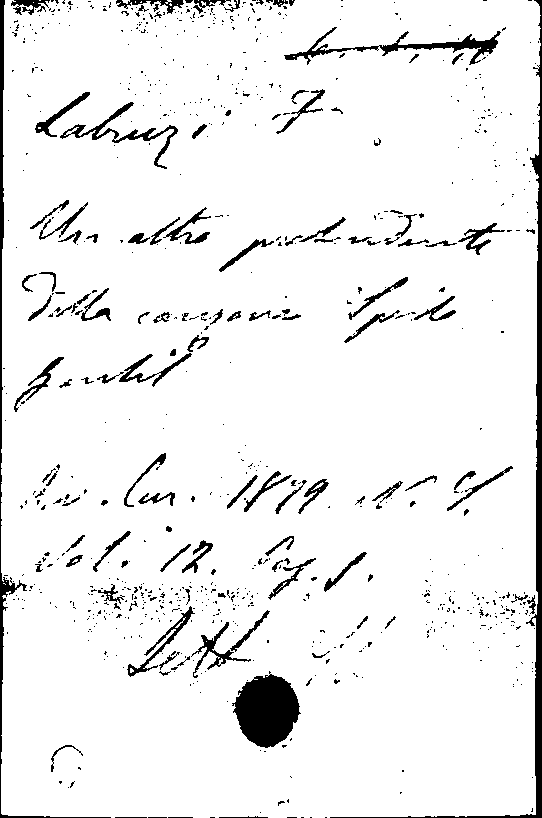 Labruzi F.
Un altro pretendente
della canzone Spirto
gentil
Riv. Eur. 1879 N. S.
Vol. 12. Pag. 5.
Lett.